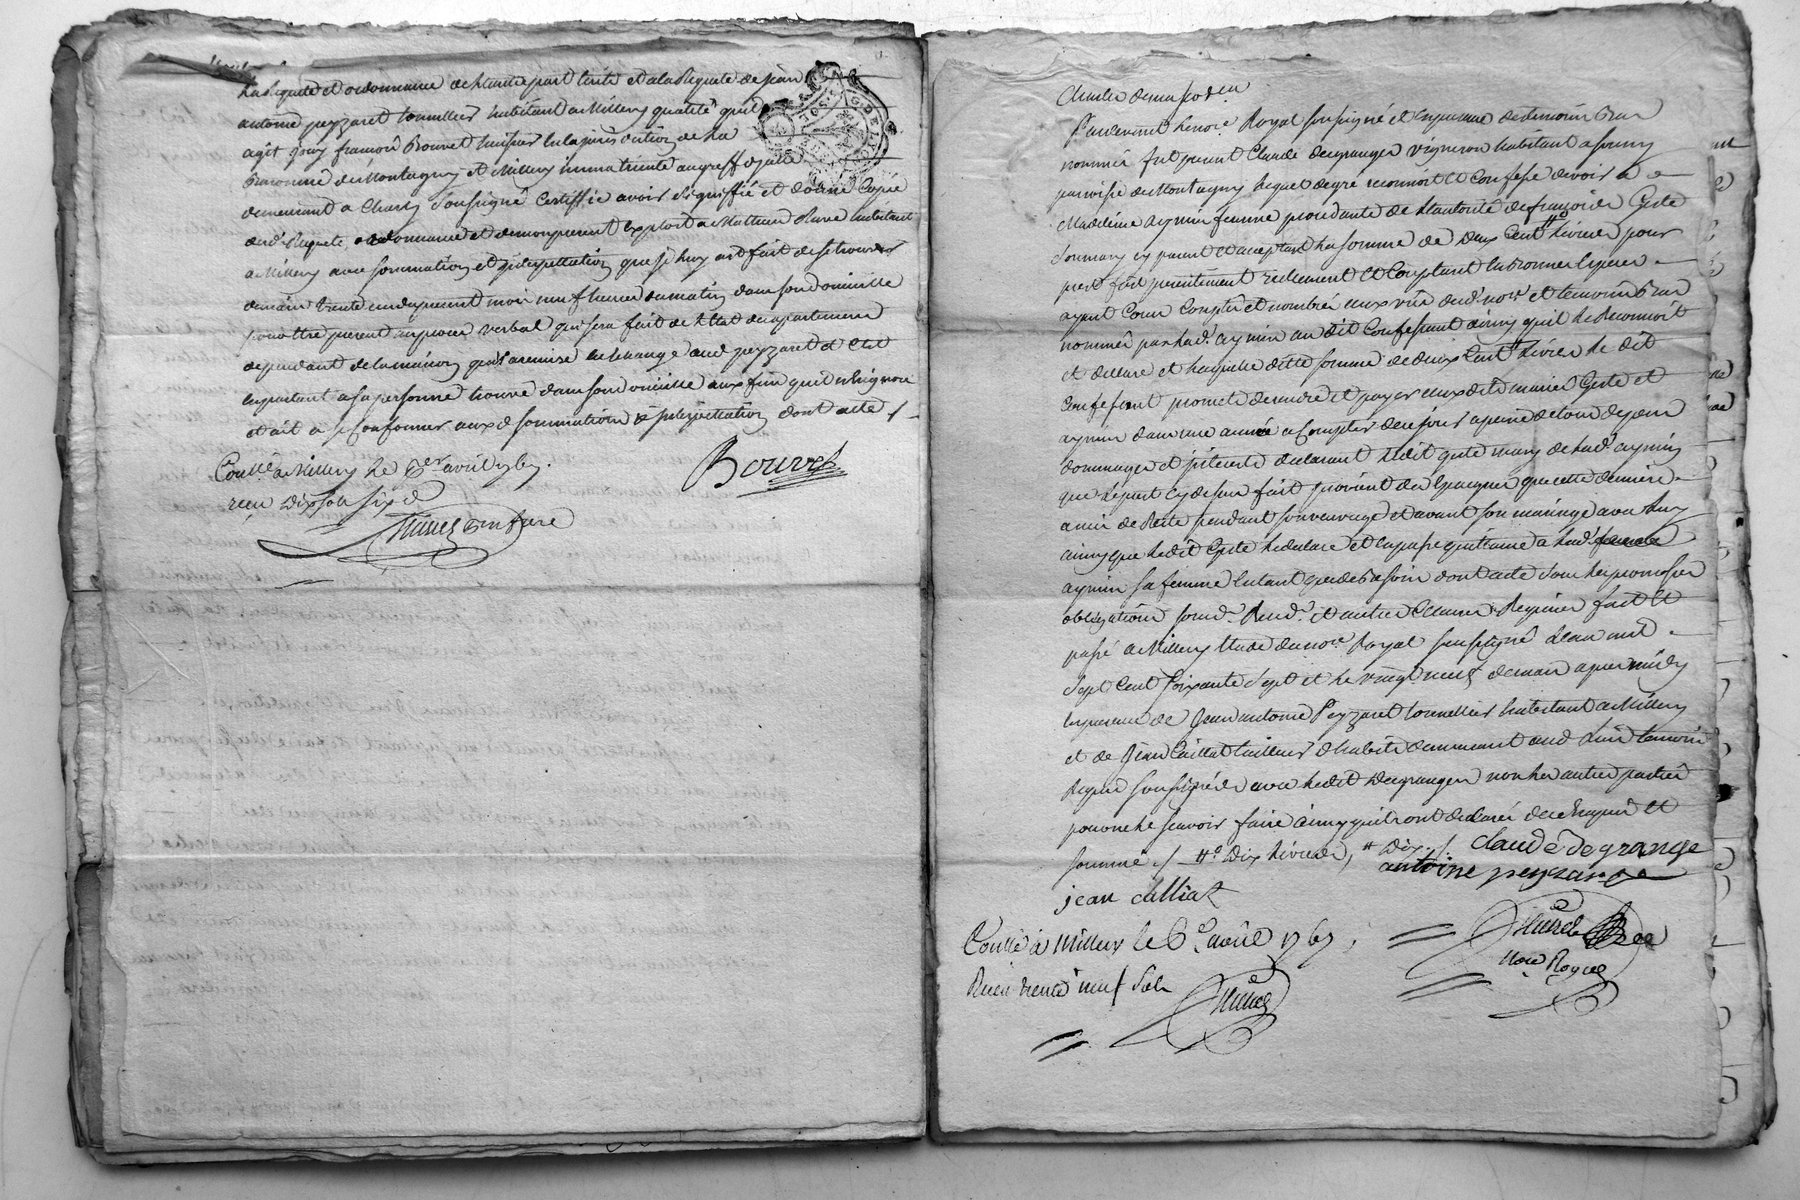 La Requete et ordonnance de l'autre part ecrite et a la Requete de jean
antoine peyzaret tonnellier habitant a Millery qualité qu'il
agit Nous françois Bouvet huissier en la jurisdiction de la
Baronnie de Montagny et Millery immatriculé au greffe d'icelle
demeurant a Charly soussigné Certiffie avoir signiffié et donné Copie
desd. Requete, ordonnance et de mon present Exploit a habitant
a Millery avec sommation et interpellation que je luy ait fait de se trouver
demain trente du present mois neuf heures du matin dans son domicille
pour être present au procer verbal qui sera fait de l'Etat des apartements
dependant de la maison qu'il a remise en Echange aud peyzaret et C'est
en parlant a sa personne trouvé dans son domicille aux fins qu'il n'En ignore
et ait a se Conformer auxd sommation et interpellation dont acte /.
Bouvet
Conllé a Millery le 6er avril 1767.
reçu dix sols six d

Charles de mes pod.en
Pardevant le no.re Royal soussigné et en presence des temoins Bas
nommés fut present Claude degranger vigneron habitant a
parroisse de Montagny lequel de gré reconnoit et Confesse devoir a
Madeleine aymin femme procedante de l'autorité de françois Gute
son mary icy present et aceptant la somme de deux Cent livres pour
pret fait presentement reellement et Comptant en bonnes Especes
ayant Cours Comptées et nombrées aux vue dud. no.re et temoins Bas
nommés par lad. aymin au dit Confessant ainsy qu'il le Reconnoit
et declare et laquelle ditte somme de deux Cent livres le dit
Confessant promet de rendre et payer auxdits mariés Gute et
aymin dans une année a Compter de ce jour a peine de tous depens
dommages et interets declarant ledit Gute mary de lad. aymin
que le pret cy dessus fait provient des Epargnes que cette derniere
a mis de Reste pendant son veuvage et avant son mariage avec luy
ainsy que ledit Gute le declare et en passe quittance a lad.
aymin sa femme En tant que de Besoin dont acte sous les promesses
obligations soum.s Ren.s et autres Clauses Requises fait et
passé a Millery Etude du no.re Royal soussigné L'an mil
sept Cent soixante sept et le vingt neuf de mars apres midy
En presence de Jean antoine Peyzaret tonnellier habitant a Millery
et de Jean Caillat tailleur d'habits demeurant aud. Lieu temoins
Requis soussignés avec ledit Degranger non les autres parties
pour ne le sçavoir faire ainsy qu'ils ont declaré de ce Enquis et
sommés /. dix livres dix /. claude degrange
antoine peyzaret
jean calliat
No.re Royal
Conllé à Millery le 6.e avril 1767.
Reçu trente neuf sols